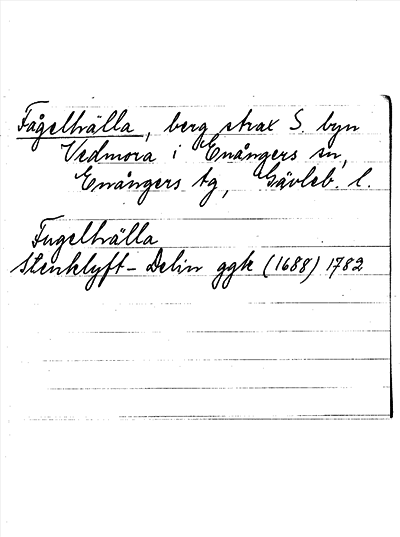 Fågelhälla, berg strax S. byn
Vedmora i Enångers sn,
Enångers tg, Gävleb. l.
Fugelhälla
Stenklyft - Delin ggk (1688) 1782